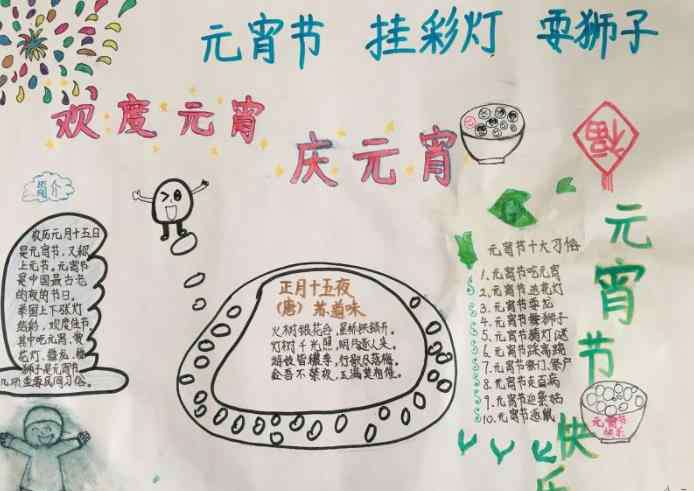 元宵节 挂彩灯 耍狮子
欢度元宵
庆元宵
福
简介
农历元月十五日
是元宵节，又称
上元节。元宵节
是中国最古老
的夜的节日。
举国上下张灯
结彩，欢度佳节
其中吃元宵，赏
花灯、舞龙、舞
狮子是元宵节
几项重要民间习俗。
正月十五夜
（唐）苏道味
火树银花合，星桥铁锁开。
灯树千光照，明月逐人来。
游妓皆秾李，行歌尽落梅。
金吾不禁夜，玉漏莫相催。
元宵节十大习俗
1.元宵节吃元宵
2.元宵节送花灯
3.元宵节舞龙
4.元宵节舞狮子
5.元宵节猜灯谜
6.元宵节踩高跷
7.元宵节祭门、祭户
8.元宵节走百病
9.元宵节迎紫姑
10.元宵节逐鼠
元宵节快乐
元宵节
快乐